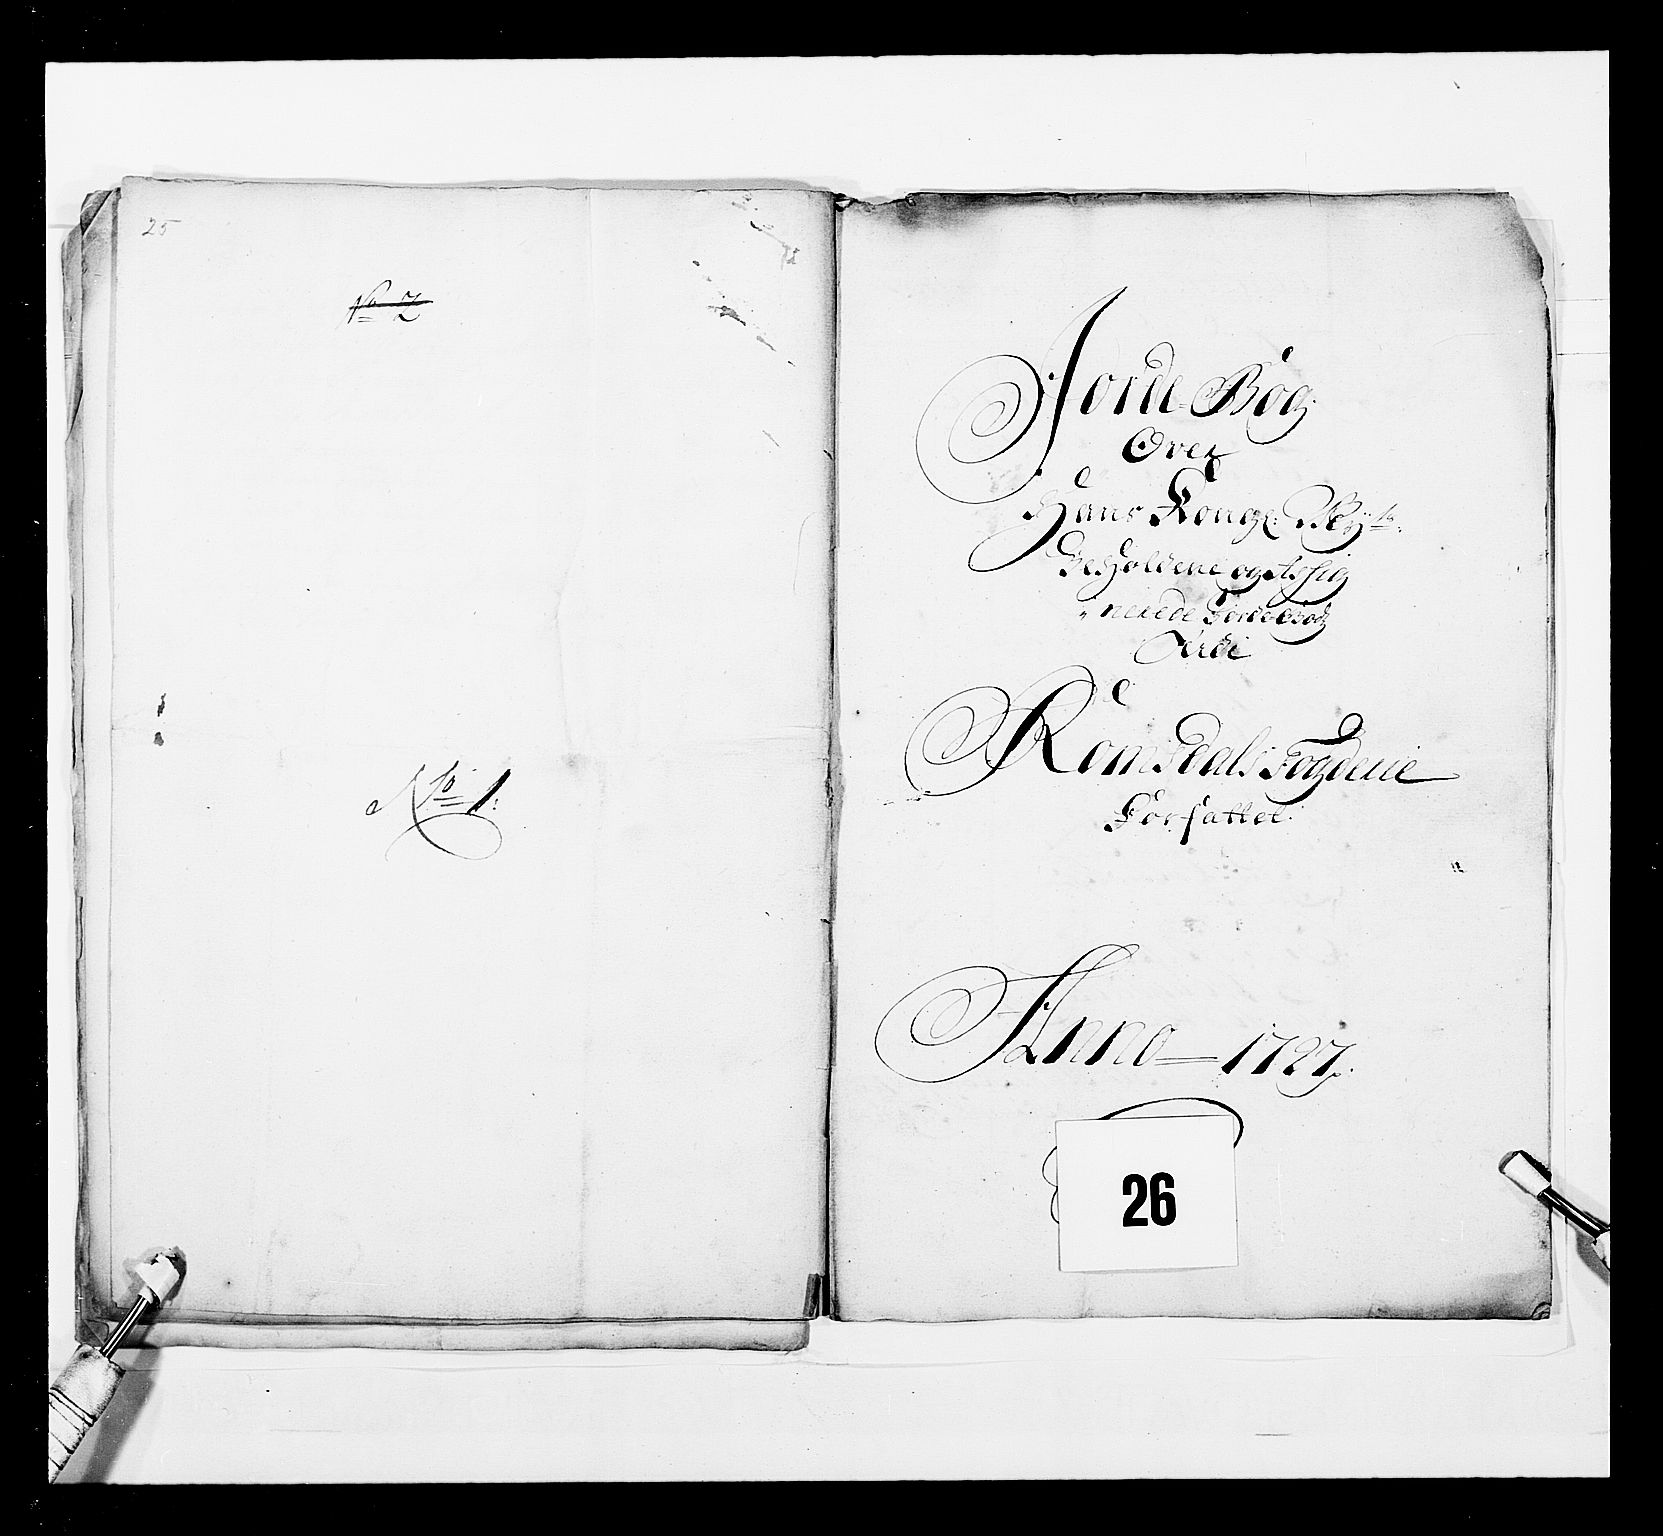 25
No 2
No 1:
Jorde Bog
Over
Hans Konge: Mayts:
Beholdene og Assig
nerede Jordegods
udi
Romsdals fogderie
Forfattet
Anno 1727
26